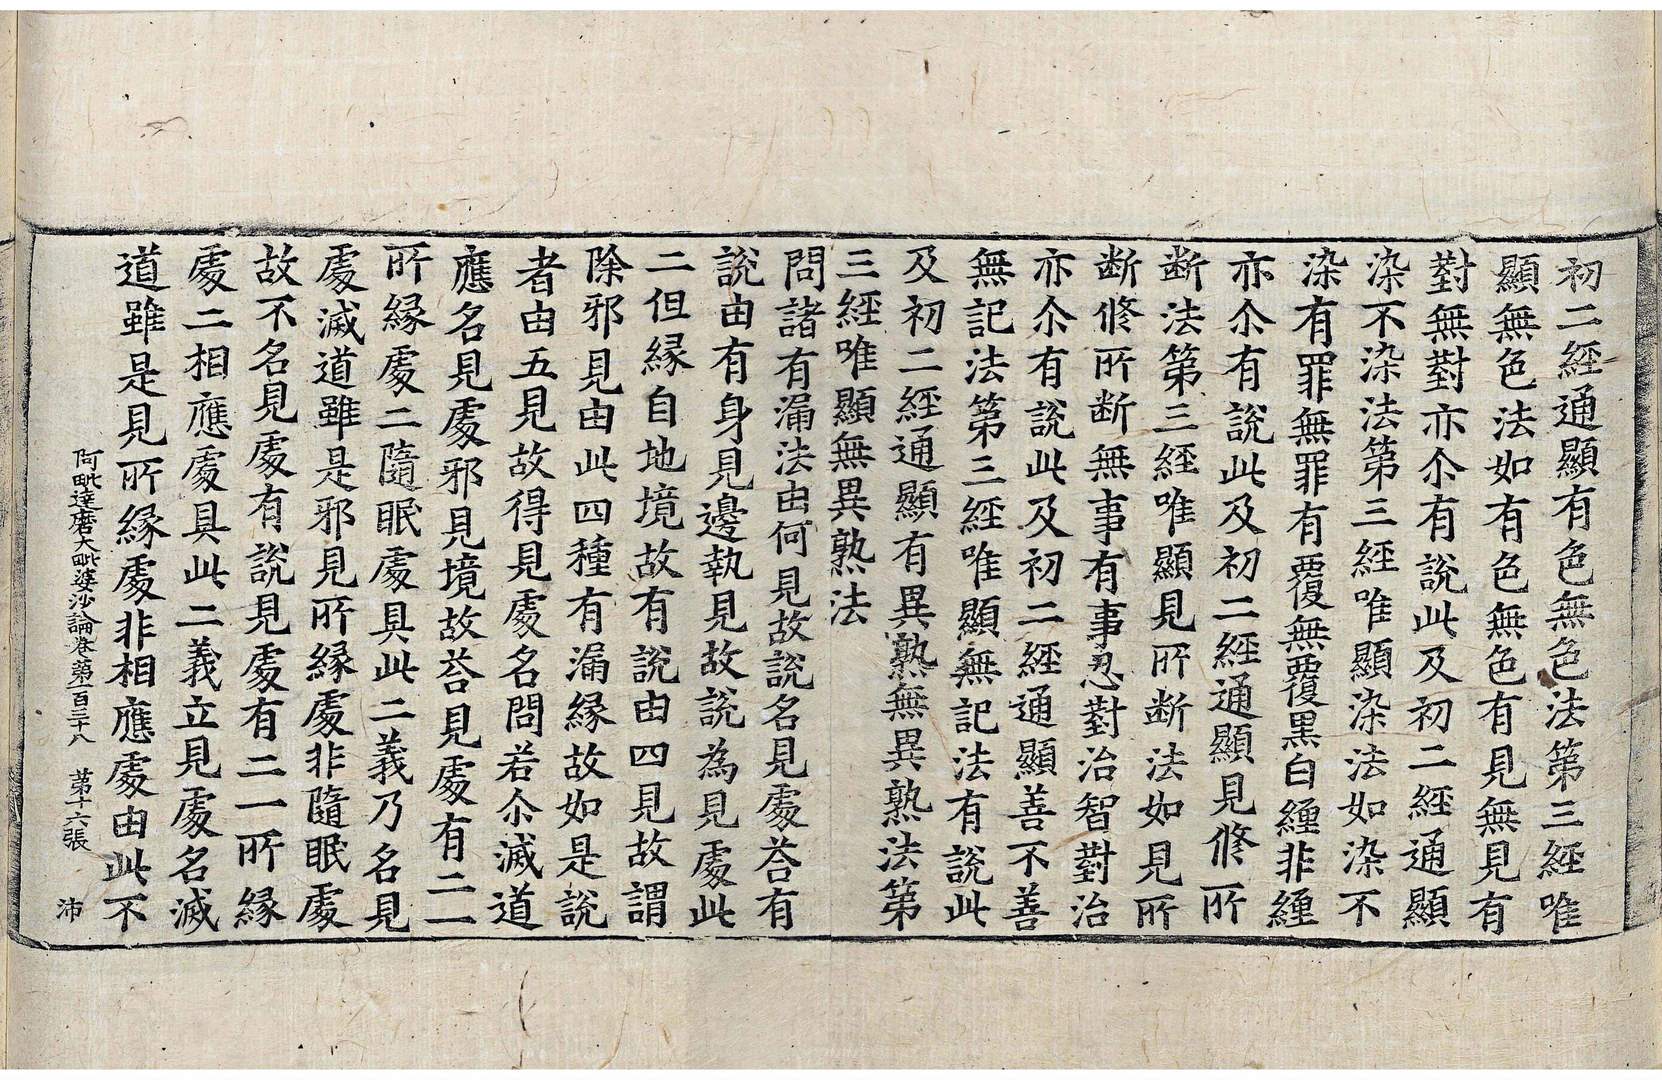 初二經通顯有色無色法第三經唯
顯無色法如有色無色有見無見有
對無對亦尒有說此及初二經通顯
染不染法第三經唯顯染法如染不
染有罪無罪有覆無覆黒白纏非纏
亦尒有說此及初二經通顯見修所
断法第三經唯顯見所断法如見所
断修所断無事有事忍對治智對治
亦尒有說此及初二經通顯善不善
無記法第三經唯顯無記法有說此
及初二經通顯有異熟無異熟法第
三經唯顯無異熟法
問諸有漏法由何見故說名見處荅有
說由有身見邊執見故說為見處此
二但緣自地境故有說由四見故謂
除邪見由此四種有漏緣故如是說
者由五見故得見處名問若尒滅道
應名見處邪見境故荅見處有二一
所緣處二隨眠處具此二義乃名見
處滅道雖是邪見所緣處非隨眠處
故不名見處有說見處有二一所緣
處二相應處具此二義立見處名滅
道雖是見所緣處非相應處由此不
阿毗達磨大毗婆沙論卷第一百三十八 第十六張 沛